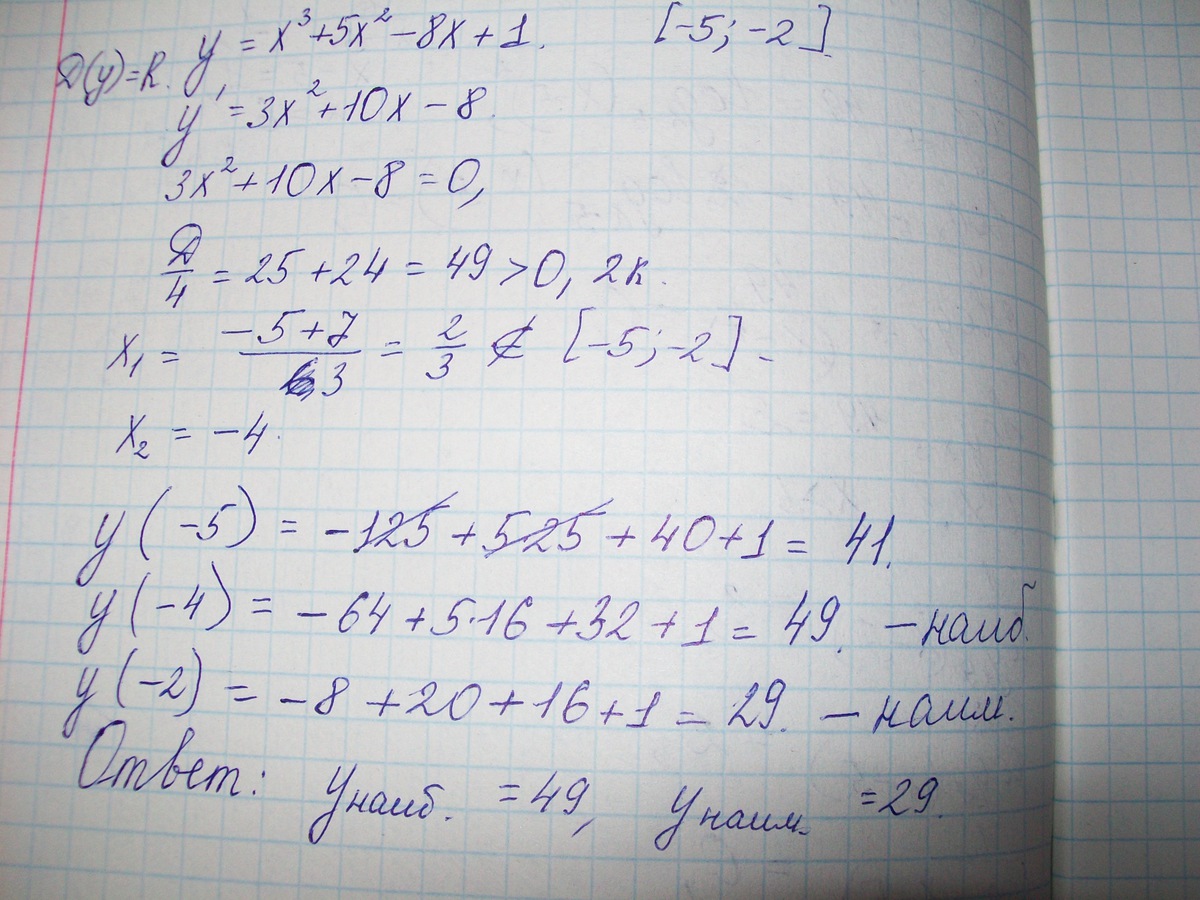 y = x³+5x²-8x+1. [-5; -2]
D(y)=R.
y' = 3x²+10x-8.
3x²+10x-8=0,
D/4 = 25+24 = 49 >0, 2к.
x₁ = (-5+7)/3 = 2/3 ∉ [-5;-2] -
x₂ = -4.
y(-5) = -125+525+40+1 = 41.
y(-4) = -64+5·16+32+1 = 49. - наиб.
y(-2) = -8+20+16+1 = 29. - наим.
Ответ: y наиб. =49, y наим. =29.